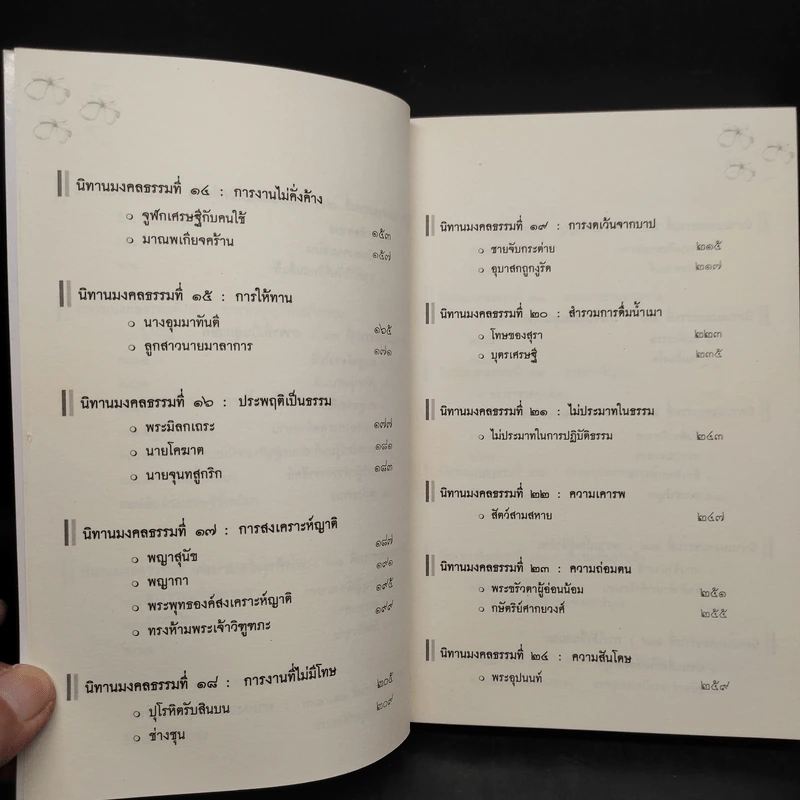 นิทานมงคลธรรมที่ ๑๔ : การงานไม่คั่งค้าง
จูฬกเศรษฐีกับคนใช้ ๑๕๓
มาณพเกียจคร้าน ๑๕๗
นิทานมงคลธรรมที่ ๑๕ : การให้ทาน
นางอุมมาทันตี ๑๖๕
ลูกสาวนายมาลาการ ๑๗๑
นิทานมงคลธรรมที่ ๑๖ : ประพฤติเป็นธรรม
พระมิลกเถระ ๑๗๗
นายโคฆาต ๑๘๑
นายจุนทสูกริก ๑๘๓
นิทานมงคลธรรมที่ ๑๗ : การสงเคราะห์ญาติ
พญาสุนัข ๑๘๗
พญากา ๑๙๑
พระพุทธองค์สงเคราะห์ญาติ ๑๙๕
ทรงห้ามพระเจ้าวิฑูฑภะ ๑๙๙
นิทานมงคลธรรมที่ ๑๘ : การงานที่ไม่มีโทษ
ปุโรหิตรับสินบน ๒๐๕
ช่างชุน ๒๐๙
นิทานมงคลธรรมที่ ๑๙ : การงดเว้นจากบาป
ชายจับกระต่าย ๒๑๕
อุบาสกถูกงูรัด ๒๑๗
นิทานมงคลธรรมที่ ๒๐ : สำรวมการดื่มน้ำเมา
โทษของสุรา ๒๒๓
บุตรเศรษฐี ๒๓๕
นิทานมงคลธรรมที่ ๒๑ : ไม่ประมาทในธรรม
ไม่ประมาทในการปฏิบัติธรรม ๒๔๓
นิทานมงคลธรรมที่ ๒๒ : ความเคารพ
สัตว์สามสหาย ๒๔๗
นิทานมงคลธรรมที่ ๒๓ : ความถ่อมตน
พระชรัวตาผู้อ่อนน้อม ๒๕๑
กษัตริย์ศากยวงศ์ ๒๕๕
นิทานมงคลธรรมที่ ๒๔ : ความสันโดษ
พระอุปนนท์ ๒๕๙